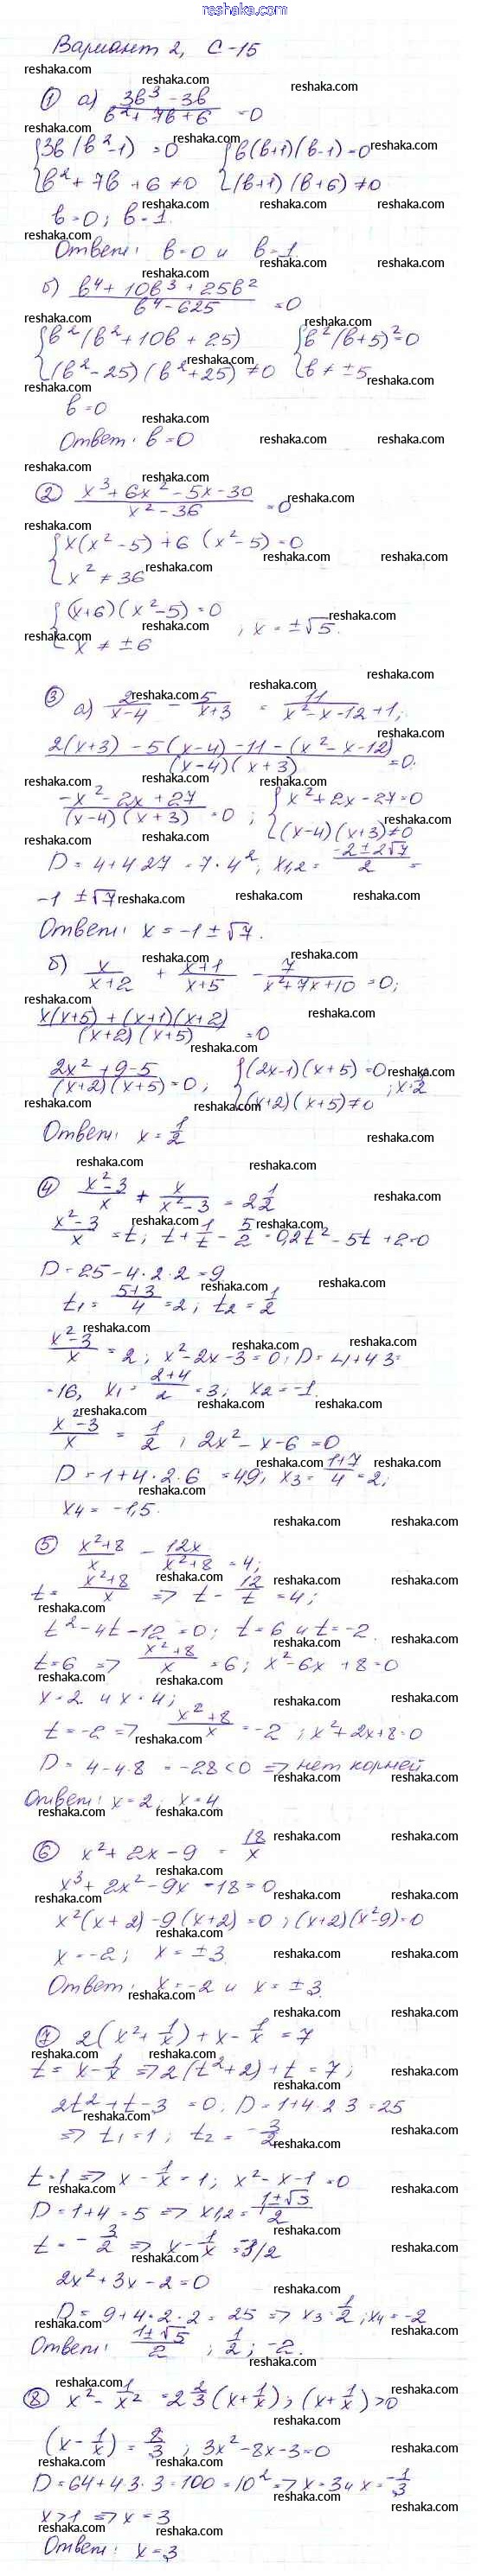 reshaka.com
Вариант 2, С-15
① а) (3b³ - 3b)/(b² + 7b + 6) = 0
{3b(b² - 1) = 0 {b(b+1)(b-1) = 0
{b² + 7b + 6 ≠ 0 {(b+1)(b+6) ≠ 0
b = 0; b = 1.
Ответ: b = 0 и b = 1.
б) (b⁴ + 10b³ + 25b²)/(b⁴ - 625) = 0
{b²(b² + 10b + 25) {b²(b+5)² = 0
{(b² - 25)(b² + 25) ≠ 0 {b ≠ ±5
b = 0
Ответ: b = 0
② (x³ + 6x² - 5x - 30)/(x² - 36) = 0
{x(x² - 5) + 6(x² - 5) = 0
{x² ≠ 36
{(x+6)(x² - 5) = 0
{x ≠ ±6 ; x = ±√5.
③ а) 2/(x-4) - 5/(x+3) = 11/(x² - x - 12) + 1;
(2(x+3) - 5(x-4) - 11 - (x² - x - 12))/((x-4)(x+3)) = 0.
(-x² - 2x + 27)/((x-4)(x+3)) = 0 ; {x² + 2x - 27 = 0
{(x-4)(x+3) ≠ 0
D = 4 + 4 27 = 7·4², x1,2 = (-2 ± 2√7)/2 =
-1 ± √7
Ответ: x = -1 ± √7.
б) x/(x+2) + (x+1)/(x+5) - 7/(x² + 7x + 10) = 0;
(x(x+5) + (x+1)(x+2))/((x+2)(x+5)) = 0
(2x² + 9 - 5)/((x+2)(x+5)) = 0; {(2x-1)(x+5) = 0
{(x+2)(x+5) ≠ 0
Ответ: x = 1/2
④ (x² - 3)/x + x/(x² - 3) = 2 1/2
(x² - 3)/x = t; t + 1/t - 5/2 = 0, 2t² - 5t + 2 = 0
D = 25 - 4·2·2 = 9
t₁ = (5+3)/4 = 2; t₂ = 1/2
(x² - 3)/x = 2; x² - 2x - 3 = 0; D = 4 + 4 3 =
= 16, x₁ = (2+4)/2 = 3; x₂ = -1.
(x² - 3)/x = 1/2; 2x² - x - 6 = 0
D = 1 + 4·2·6 = 49; x₃ = (1+7)/4 = 2;
x₄ = -1,5.
⑤ (x² + 8)/x - 12x/(x² + 8) = 4;
t = (x² + 8)/x ⇒ t - 12/t = 4;
t² - 4t - 12 = 0; t = 6 и t = -2.
t = 6 ⇒ (x² + 8)/x = 6; x² - 6x + 8 = 0
x = 2 и x = 4;
t = -2 ⇒ (x² + 8)/x = -2 ; x² + 2x + 8 = 0
D = 4 - 4·8 = -28 < 0 ⇒ нет корней
Ответ: x = 2; x = 4
⑥ x² + 2x - 9 = 18/x
x³ + 2x² - 9x - 18 = 0
x²(x+2) - 9(x+2) = 0; (x+2)(x² - 9) = 0
x = -2; x = ±3.
Ответ: x = -2 и x = ±3.
⑦ 2(x² + 1/x) + x - 1/x = 7
t = x - 1/x ⇒ 2(t² + 2) + t = 7;
2t² + t - 3 = 0. D = 1 + 4·2 3 = 25
⇒ t₁ = 1; t₂ = -3/2
t = 1 ⇒ x - 1/x = 1; x² - x - 1 = 0
D = 1 + 4 = 5 ⇒ x1,2 = (1 ± √5)/2
t = -3/2 ⇒ x - 1/x = -3/2
2x² + 3x - 2 = 0
D = 9 + 4·2·2 = 25 ⇒ x₃ = 1/2; x₄ = -2
Ответ: (1 ± √5)/2 ; 1/2; -2.
⑧ x² - 1/x² = 2 2/3 (x + 1/x); (x + 1/x) > 0
(x - 1/x) = 8/3 ; 3x² - 8x - 3 = 0
D = 64 + 4 3·3 = 100 = 10² ⇒ x = 3 и x = -1/3
x > 1 ⇒ x = 3
Ответ: x = 3